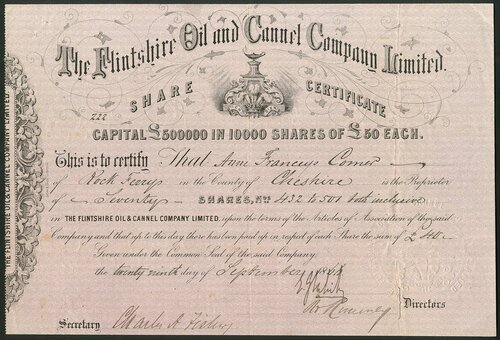 The Flintshire Oil and Cannel Company Limited.
SHARE CERTIFICATE
222
CAPITAL £500000 IN 10000 SHARES OF £50 EACH.
This is to certify That Anne Frances Comer
of Rock Ferry in the County of Cheshire is the Proprietor
of Seventy SHARES, Nos 432 to 501 both inclusive
in THE FLINTSHIRE OIL & CANNEL COMPANY LIMITED, upon the terms of the Articles of Association of the said
Company and that up to this day there has been paid up in respect of each Share the sum of £40
Given under the Common Seal of the said Company
the twenty ninth day of September
Directors
Secretary Charles A
THE FLINTSHIRE OIL & CANNEL COMPANY LIMITED